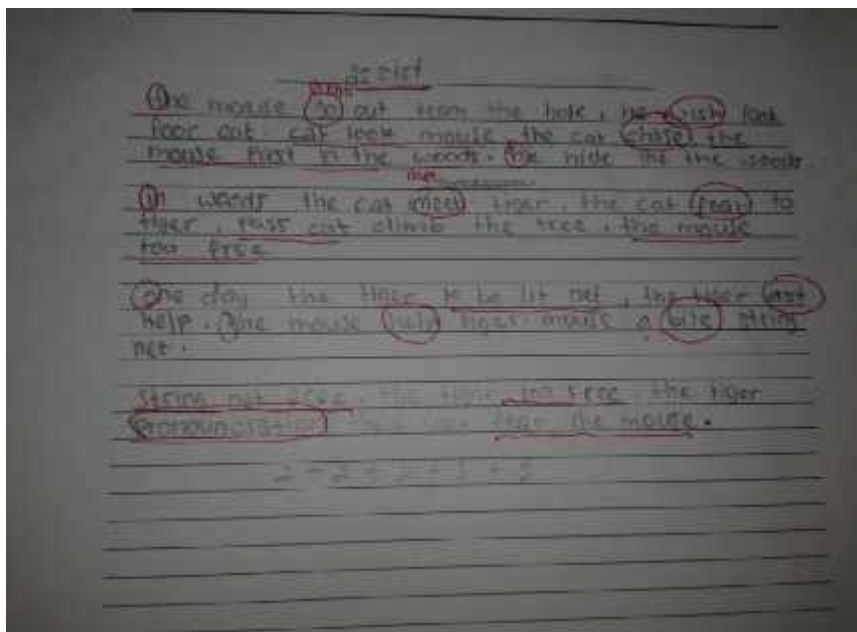 assist
the mouse go out from the hole, he wish look
foor cat. cat look mouse. the cat chase the
mouse fast in the woods. he hide in the woods.
in woods the cat meet tiger. the cat fear to
tiger, pass cat climb the tree. the mouse
too free
one day the tiger to be lit net, the tiger
help. the mouse help tiger. mouse a bite string
net.
string net free. the tiger too free. the tiger
pronounciation fear the mouse.
2 + 2 + 2 + 1 + 2